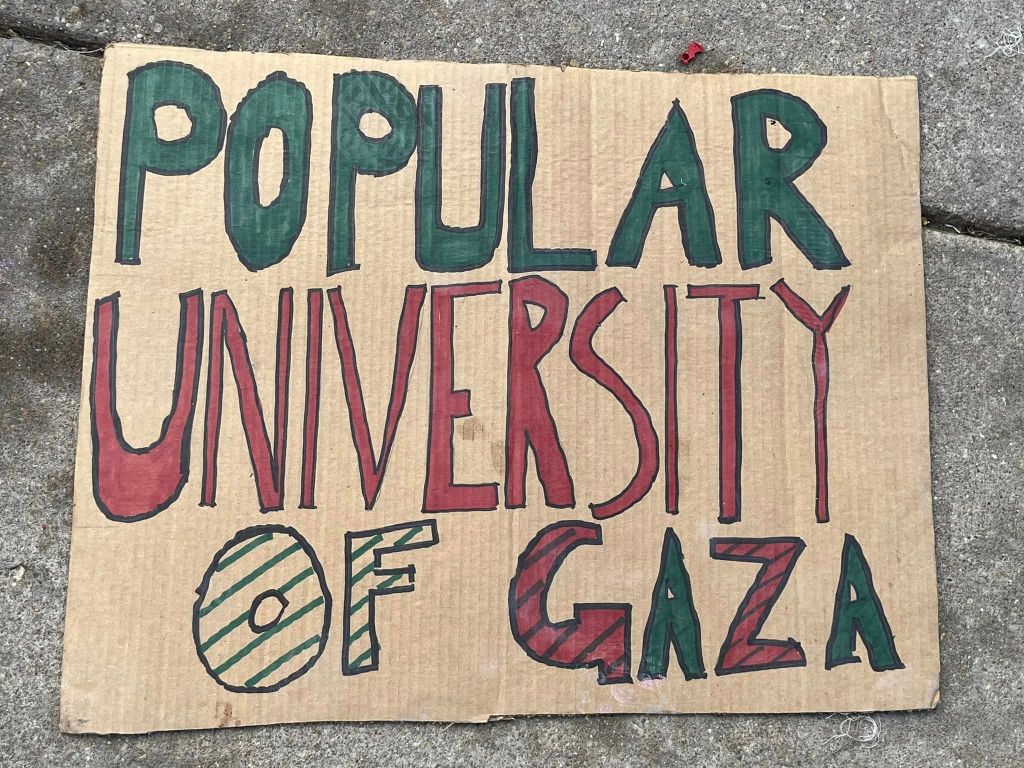 POPULAR
UNIVERSITY
OF GAZA